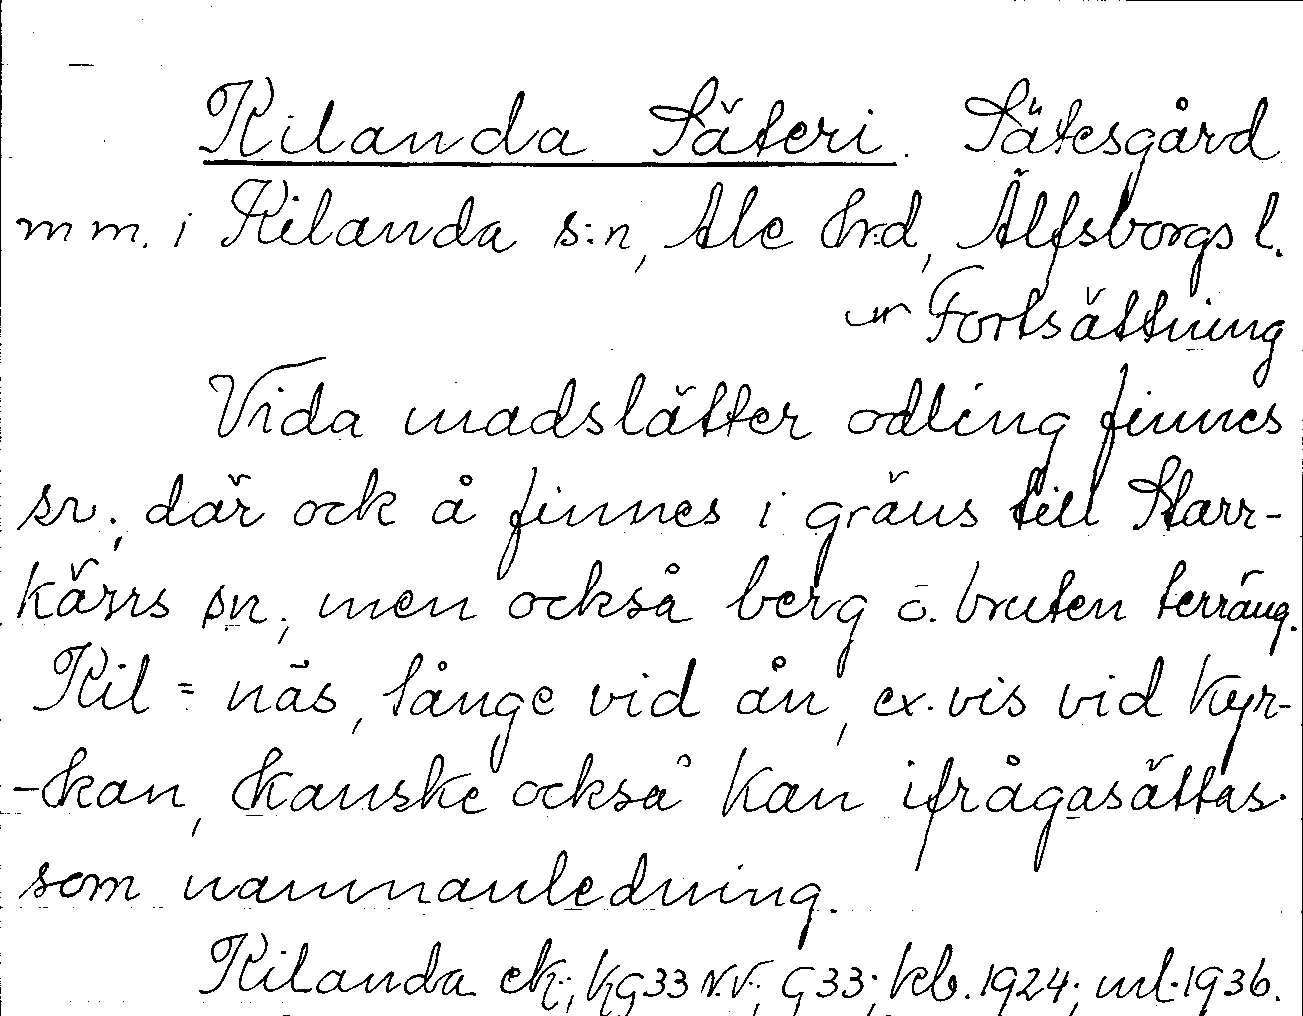 Kilanda Säteri. Sätesgård
m m. i Kilanda s:n, Ale Hr:d, Älfsborgs l.
Fortsättning
Vida madslätter odling finnes
sn; där ock å finnes i gräns till Starr-
kärrs sn; men också berg o. bruten terräng.
Kil = näs, långe vid ån, ex.vis vid Kyr-
-kan, kanske också kan ifrågasättas
som namnanledning.
Kilanda ek; kg 33 N.V., G 33; kb. 1924; url. 1936.